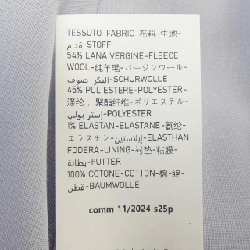 TESSUTO FABRIC 布料 生地-
قدم STOFF
54% LANA VERGINE-FLEECE
WOOL-纯羊毛-バージンウール-
SCHURWOLLE
45% POLIESTERE-POLYESTER-
涤纶、聚酯纤维-ポリエステル-
POLYESTER
1% ELASTAN-ELASTANE-氨纶-
エラスチン-ELASTHAN
FODERA-LINING-衬垫-粘膜-
بطانة-FUTTER
100% COTONE-COTTON-棉-綿-
قطن-BAUMWOLLE
comm 11/2024 s25p